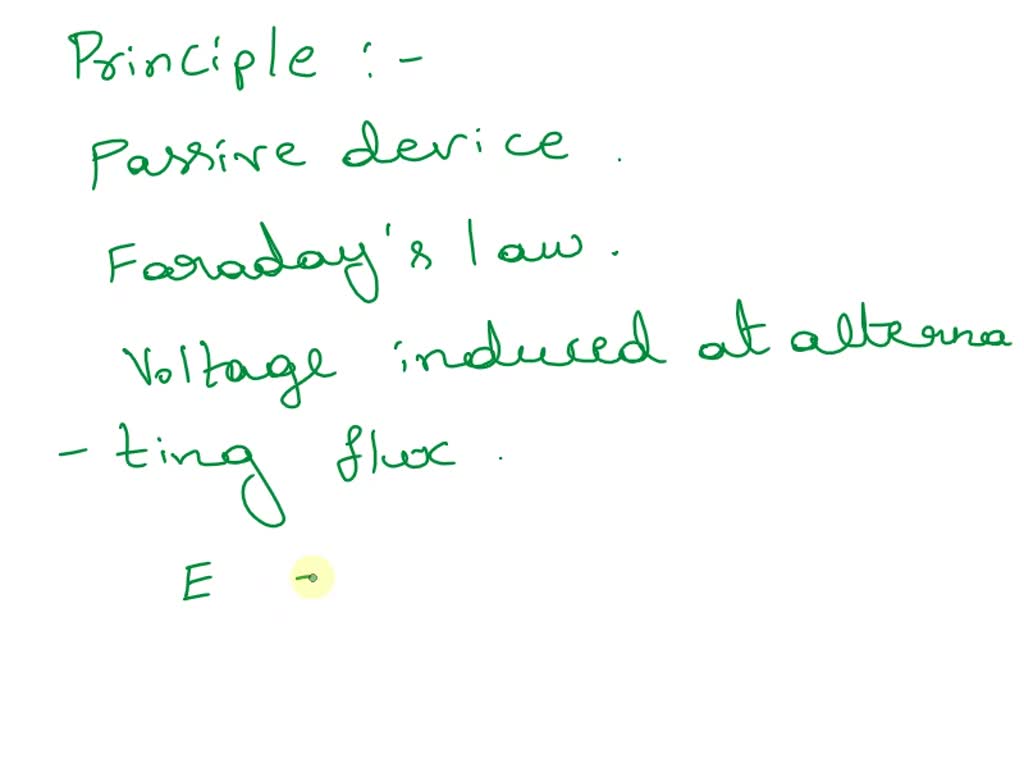 Principle :-
Passive device .
Faraday's law .
Voltage induced at alterna
- ting flux .
E -